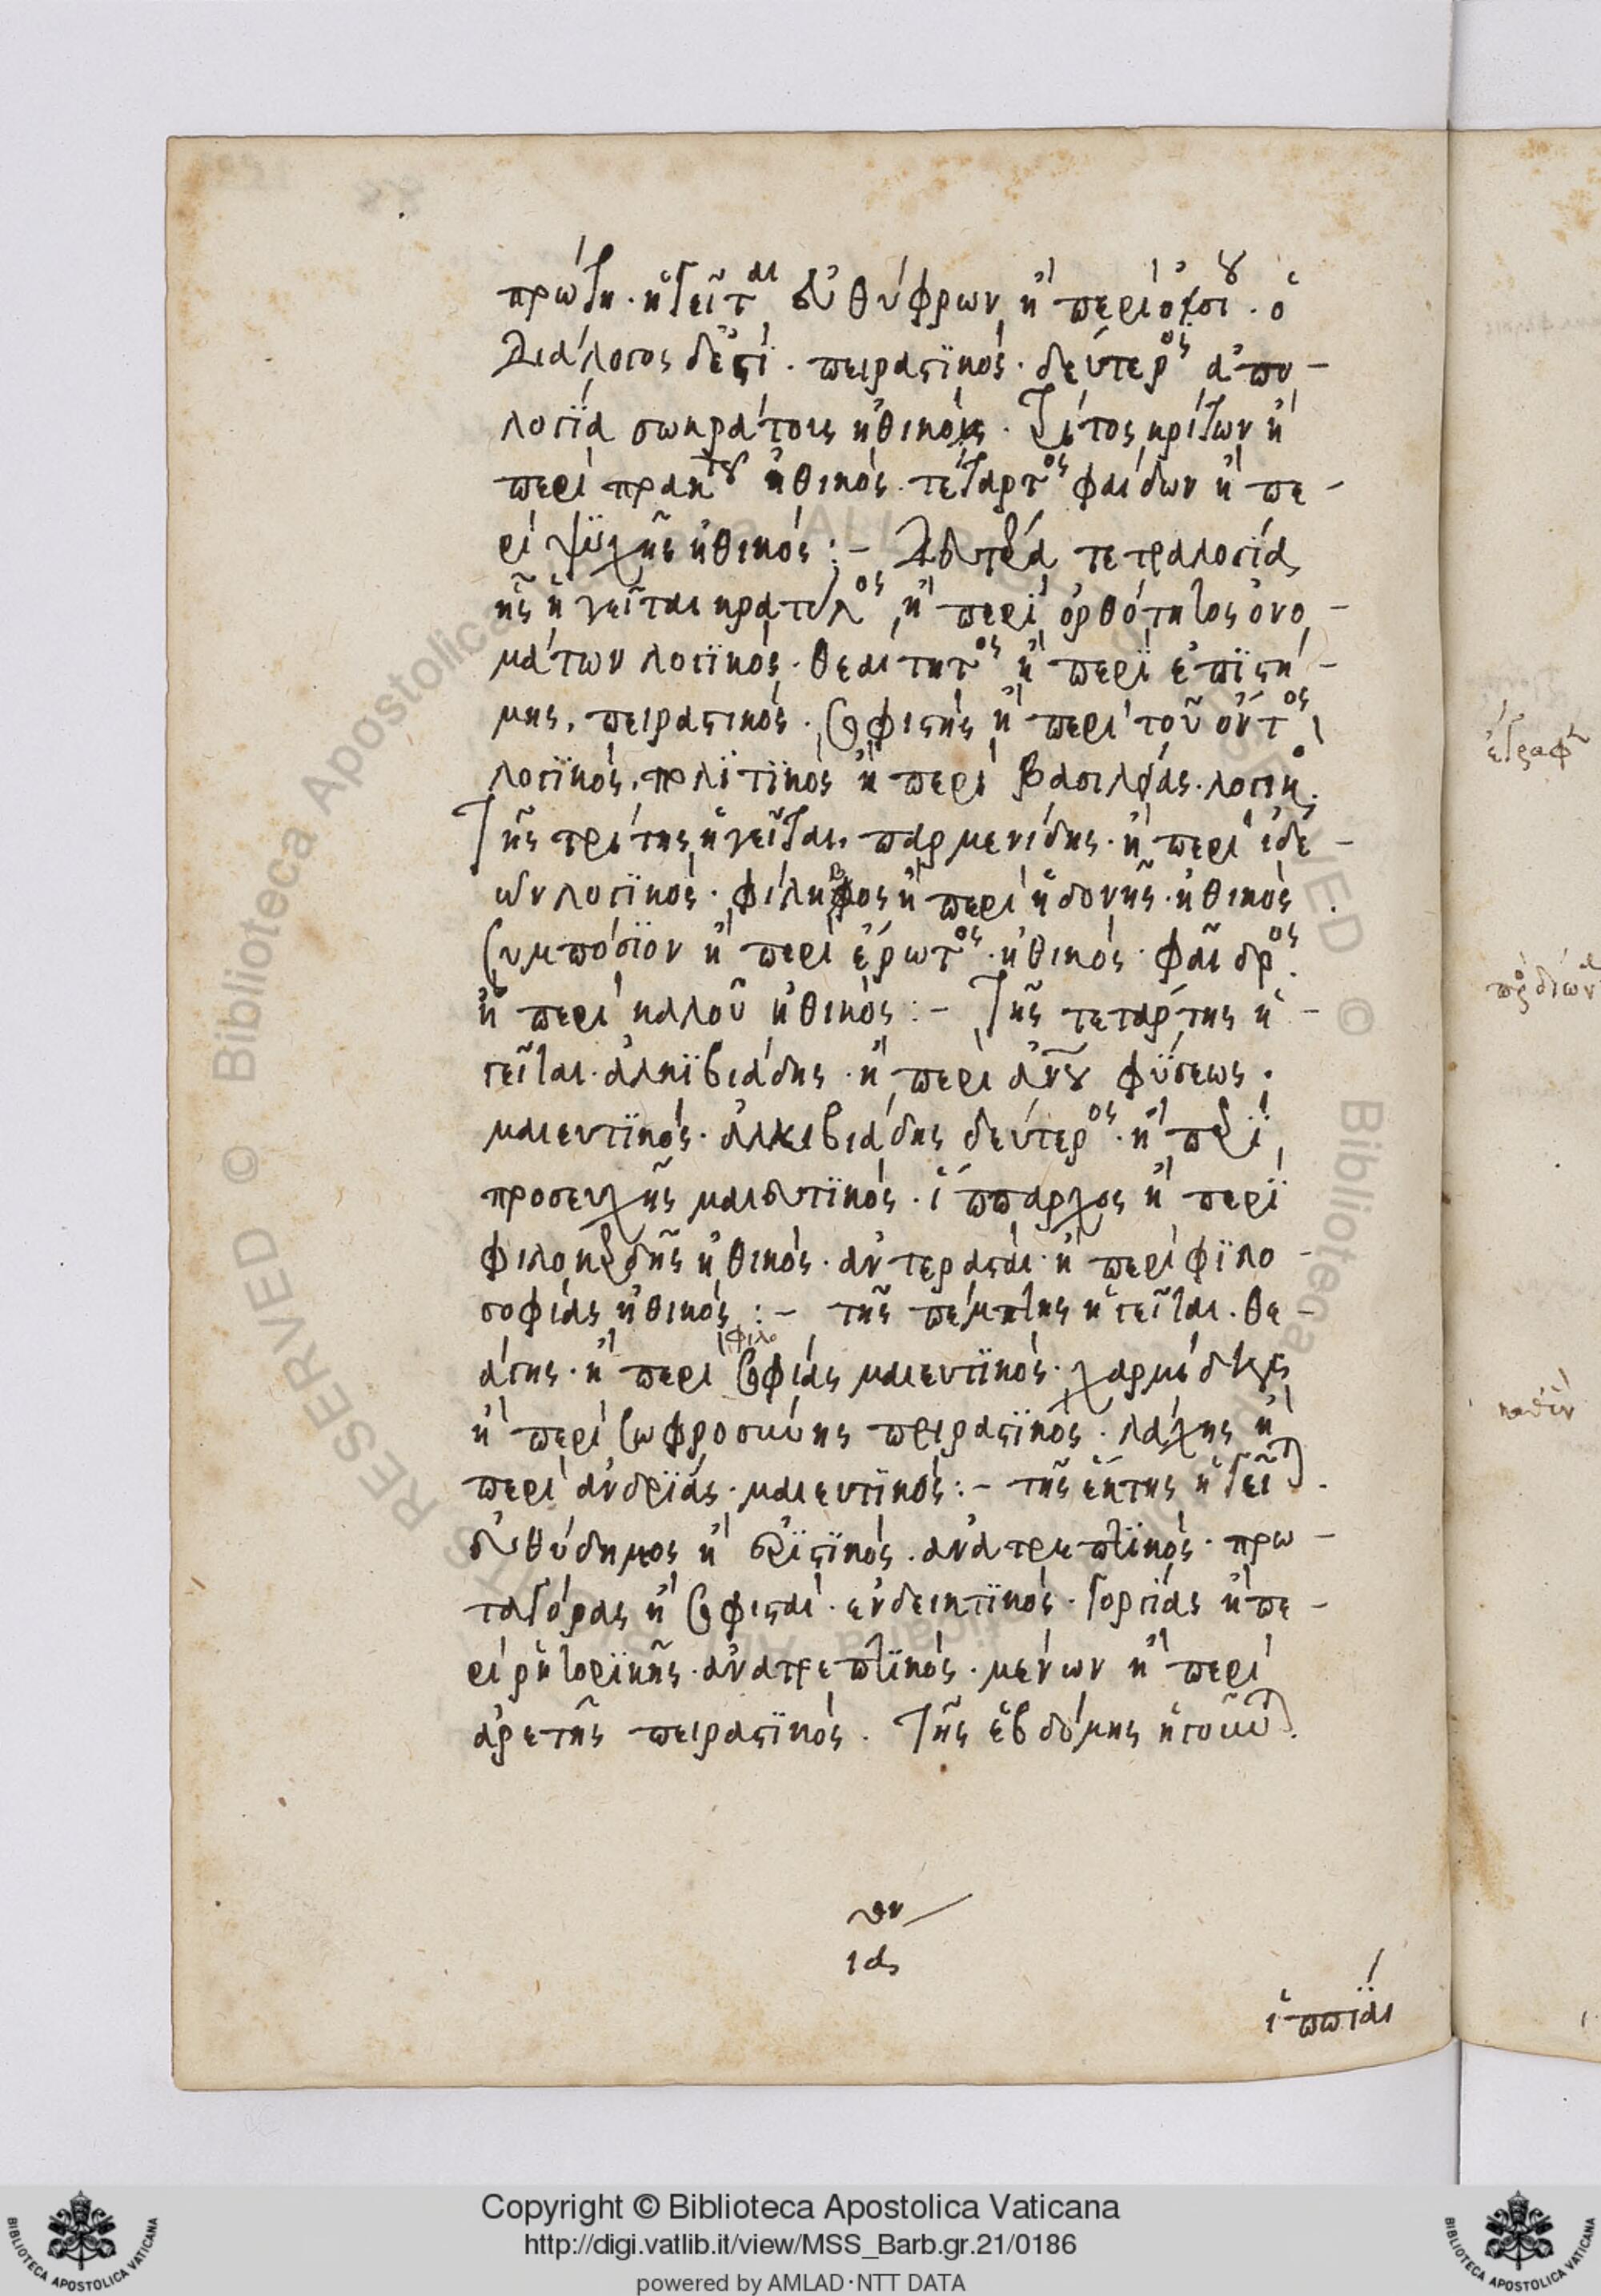 πρώτη· ἡγεῖται εὐθύφρων ἢ περὶ ὁσίου· ὁ
διάλογος δέ ἐστϊ· πειραστϊκός· δεύτερος ἀπο-
λογϊα σωκράτους ἠθικός· τρίτος κρίτων ἢ
περὶ πρακτοῦ ἠθικός· τέταρτος φαίδων ἢ πε-
ρὶ ψϋχῆς ἠθικός:- Δευτέρα τετραλογϊα
ἧς ἡγεῖται κρατύλος, ἢ περὶ ὀρθότητος ὀνο-
μάτων λογϊκός· θεαιτητος ἢ περὶ ἐπϊστή-
μης, πειραστικός· Σοφιστής ἢ περὶ τοῦ ὄντος
λογϊκός, πολϊτϊκός ἢ περὶ βασιλείας· λογικός.
Τῆς τρίτης ἡγεῖται, παρμενίδης· ἢ περὶ ἰδε-
ῶν λογϊκός· φίληβος ἢ περὶ ἡδονῆς· ἠθικός
Συμπόσϊον ἢ περὶ ἔρωτος· ἠθικός· φαῖδρος.
ἢ περὶ καλοῦ ἠθικός:- Τῆς τετάρτης ἡ-
γεῖται· ἀλκϊβιάδης· ἢ περὶ ἀνου φϋσεως.
μαιευτϊκός· ἀλκιβιάδης δεύτερος· ἢ περὶ
προσευχῆς μαιευτϊκός· ἵππαρχος ἢ περὶ
φιλοκερδῆς ἠθικός· ἀντερασταί· ἢ περὶ φϊλο-
σοφίας ἠθικός:- τῆς πέμπτης ἡγεῖται· θε-
άγης· ἢ περὶ φιλοσοφίας μαιευτϊκός· χαρμίδης
ἢ περὶ σωφροσύνης πειραστϊκός· λάχης ἢ
περὶ ἀνδρϊας· μαιευτϊκός:- τῆς ἕκτης ἡγεῖται.
εὐθύδημος ἢ ἐριστϊκός· ἀνατρεπτϊκός· πρω-
ταγόρας ἢ σοφισταί· ἐνδεικτϊκός· γοργϊας ἢ πε-
ρὶ ῥητορϊκῆς· ἀνατρεπτϊκός· μένων ἢ περὶ
ἀρετῆς πειραστϊκός. Τῆς ἑβδόμης ἡγοῦνται.
ἱππϊαι